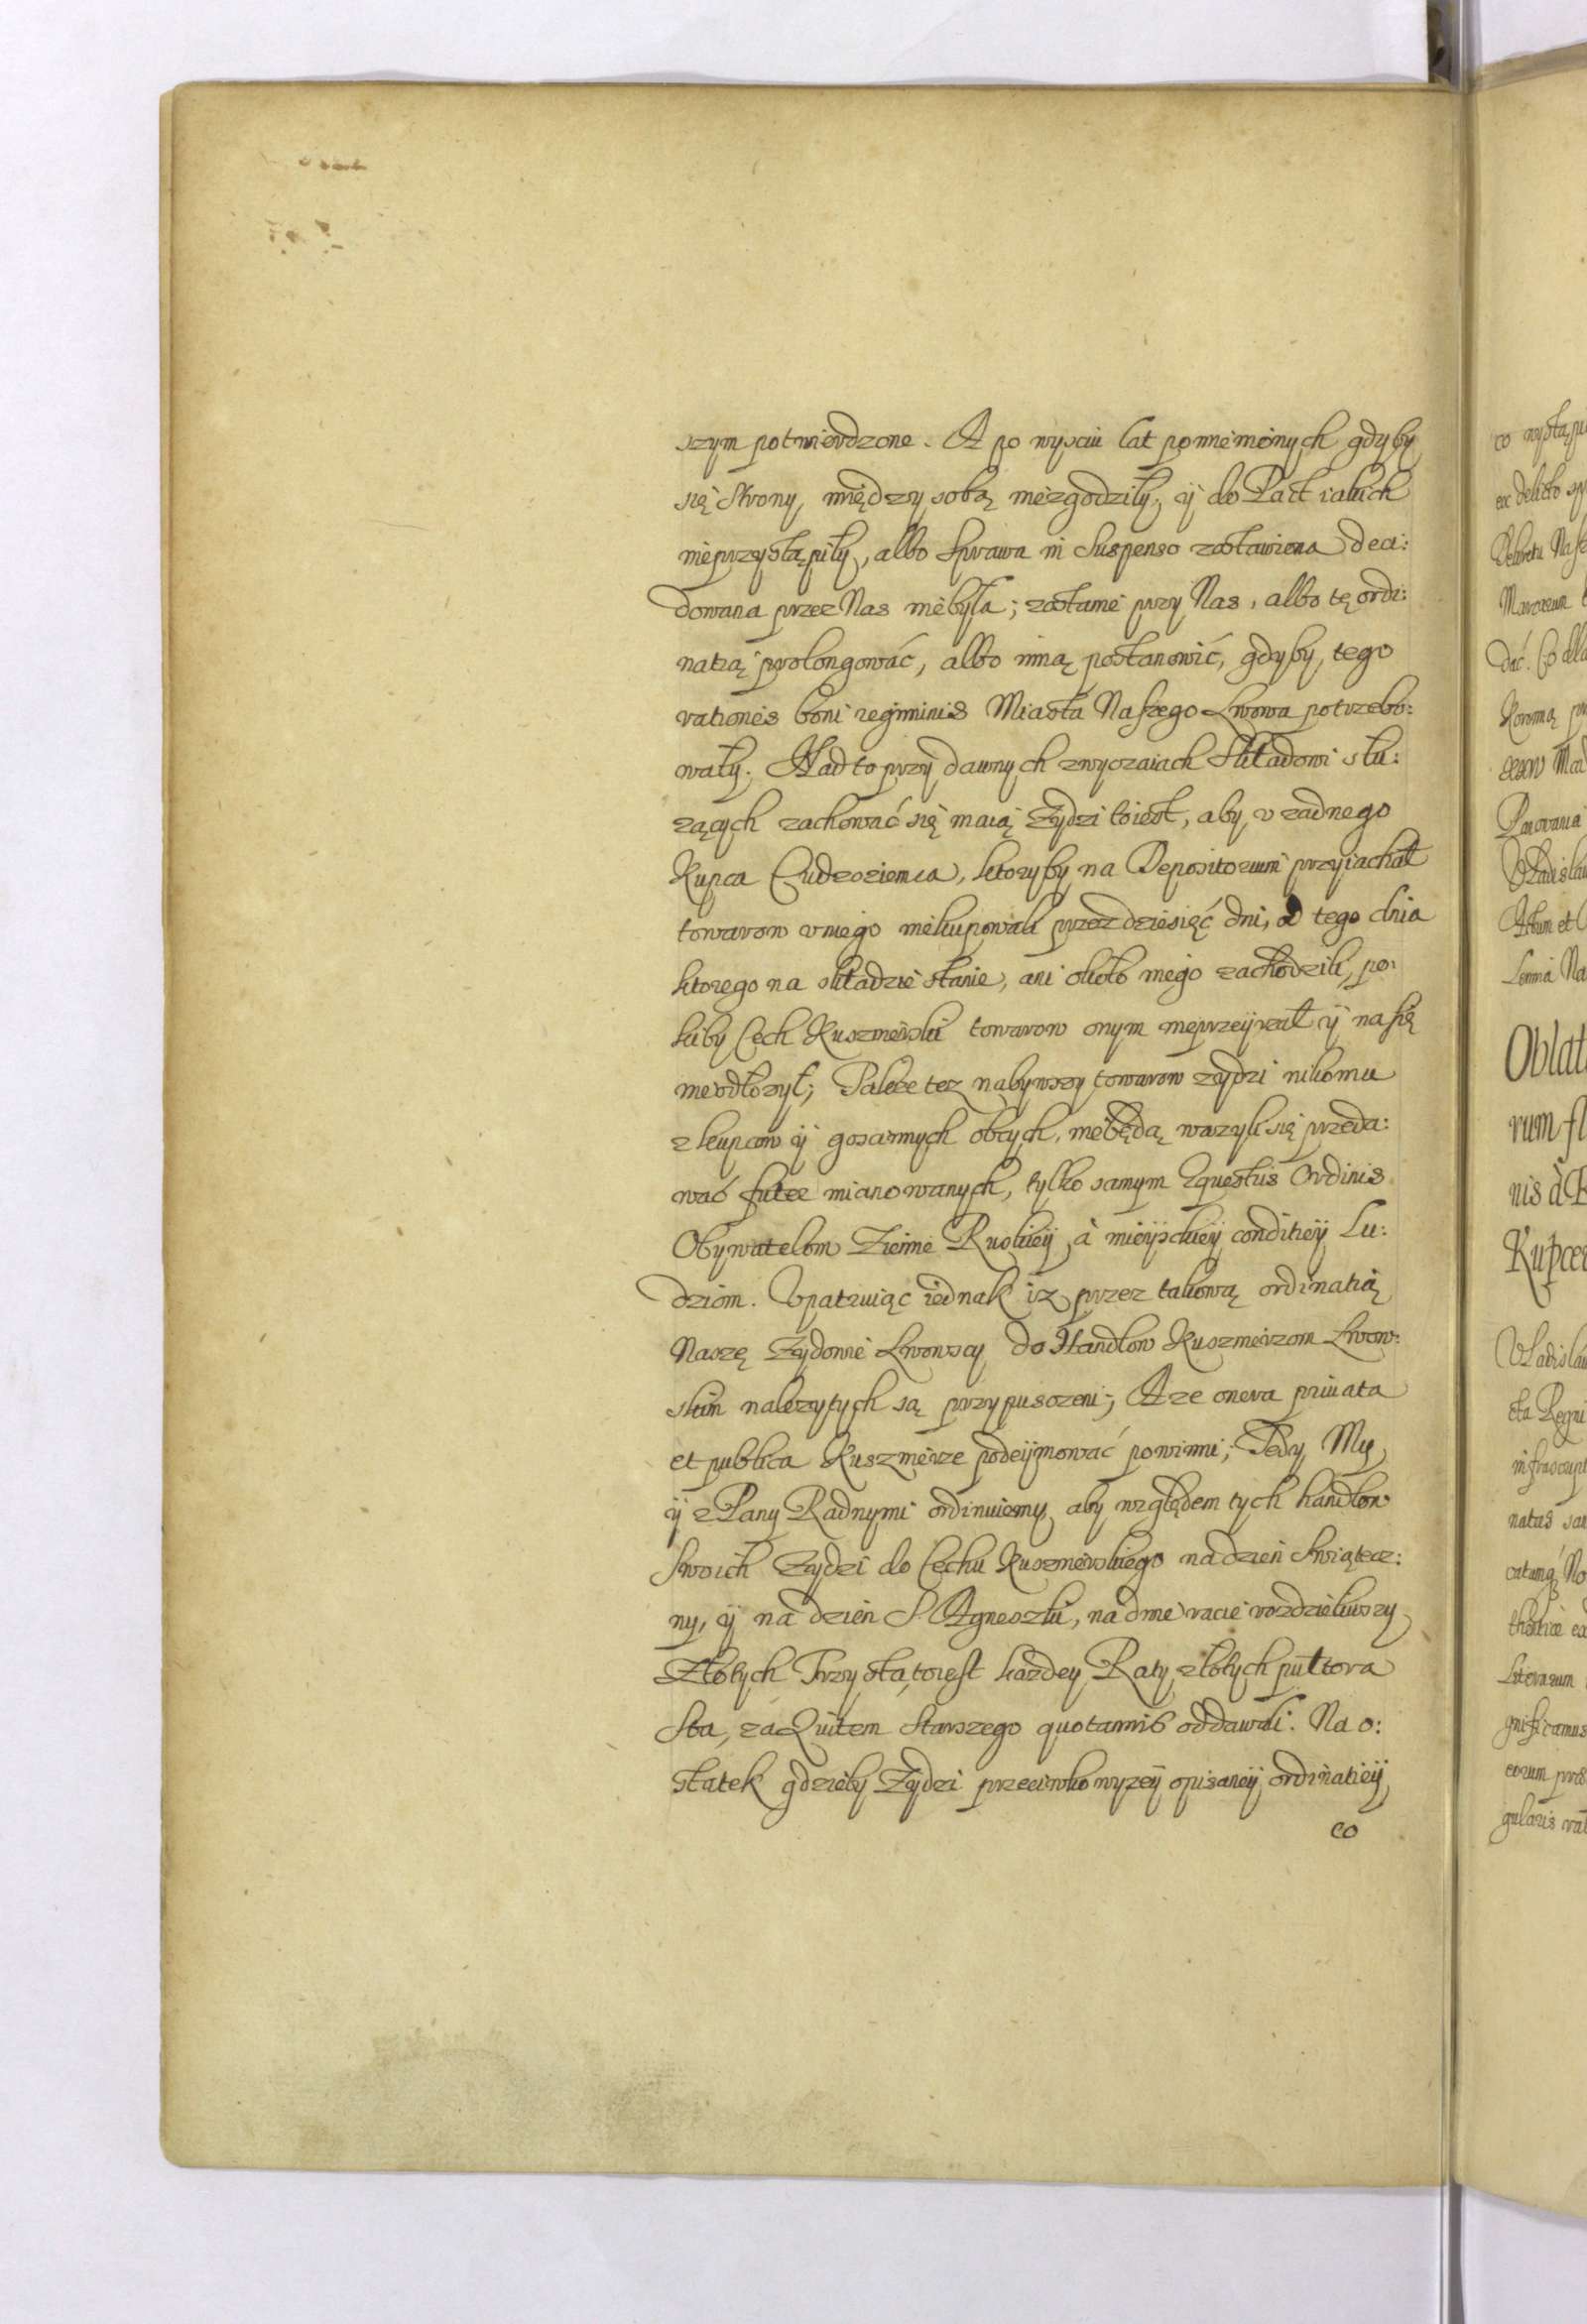 szym potwierdzone. A po wysciu lat pomienionych gdyby
się Strony, między sobą niezgodziły, ÿ do Pact iakich
nieprzystąpiły, albo Sprawa in Suspenso zostawiona deci:
dowana przez Nas niebyła; zostanie przy Nas, albo tę ordi:
natią prolongować, albo inną postanowić, gdyby, tego
rationes boni regiminis Miasta Naszego Lwowa potrzebo:
wały. Nad to przy dawnych zwyczaiach Składowi słu:
zących zachować się maią Zydzi toiest, aby v zadnego
Kupca Cudzoziemca, ktoryby na Depositorium przyiachał
towarow v niego niekupowali przez dziesięć dni, od tego dnia
ktorego na składzie stanie, ani około niego zachodzili, po:
kiby Cech Kusznierski towarow onym nieprzeÿzrał ÿ na się
nieodłozył; Także tez nabywszy towarow zydzi nikomu
z kupcow ÿ goscinnych obcych, niebędą wazyli się przeda:
wać futer mianowanych, tylko samym Equestris Ordinis
Obywatelom Ziemie Ruskieÿ, à mieÿskieÿ conditieÿ Lu:
dziom. Vpatruiąc iednak iz przez takową ordinatią
Naszę Zydowie Lwowscy do Handlow Kusznierzom Lwow:
skim nalezytych są przypuszczeni; A ze onera priuata
et publica Kusznierze podeÿmować powinni; Tedy My
ÿ z Pany Radnymi ordinuiemy, aby względem tych handlow
Swoich Zydzi do Cechu Kusznierskiego na dzień Swiątecz:
ny, ÿ na dzien S Agneszki, na dwie racie rozdzieliwszy
Złotych Trzysta, toiest kazdey Raty złotych pułtora
Sta, za Quitem Starszego quotannis oddawali. Na o:
statek gdzieby Zydzi przeciwko wyzeÿ opisaneÿ ordinatieÿ
co
co wystąpi
ex delicto
Dekretu Nasz
dać.
Koronną
Panowania
Vladisla
Actum et
Oblat
rum
nis à
Kupce
Vladislau
cta Regni
infrascript
natus
Literarum
gnificamus
gularis